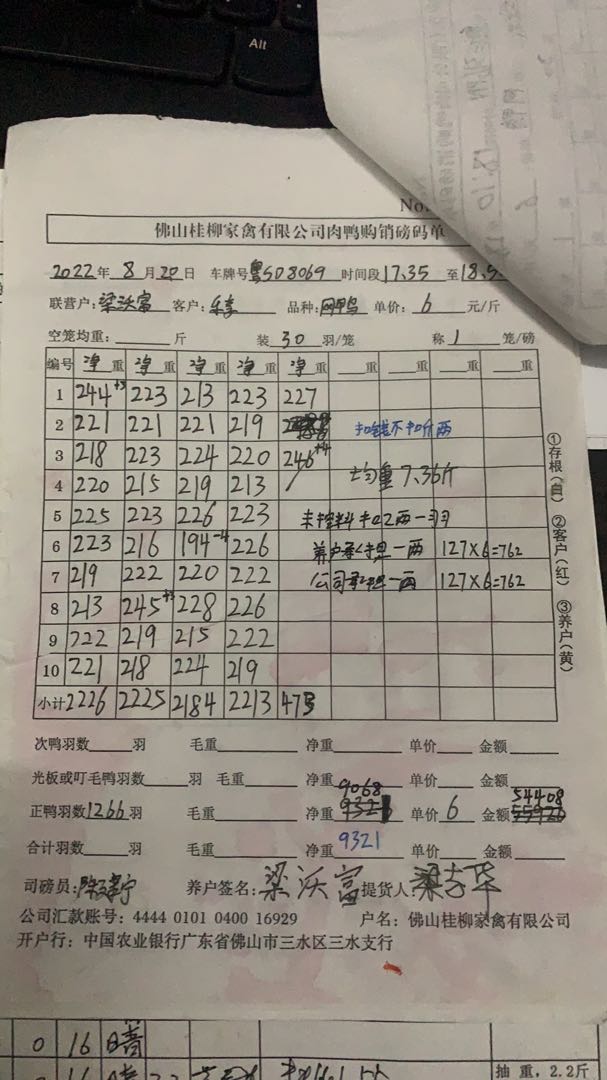 Alt
No.
佛山桂柳家禽有限公司肉鸭购销磅码单
2022年 8月20日 车牌号粤SD8069 时间段17.35 至18.5
联营户：梁沃富 客户： 品种： 单价：6 元/斤
空笼均重： 斤 装 30 羽/笼 称 1 笼/磅
编号 净重 净重 净重 净重 净重 重 重 重 重
1 244+3 223 213 223 227
2 221 221 221 219 扣钱不扣斤两
3 218 223 224 220 246+4
4 220 215 219 213 均重7.36斤
5 225 223 226 223 未控料扣2两一羽
6 223 216 194-4 226 养户承担一两 127×6=762
7 219 222 220 222 公司承担一两 127×6=762
8 213 245+3 228 226
9 222 219 215 222
10 221 218 224 219
小计 2226 2225 2184 2213 473
①存根（白） ②客户（红） ③养户（黄）
次鸭羽数 羽 毛重 净重 单价 金额
光板或叮毛鸭羽数 羽 毛重 净重 单价 金额
9068 54408
正鸭羽数1266羽 毛重 净重 9321 单价 6 金额 55926
合计羽数 羽 毛重 净重 9321 单价 金额
司磅员： 养户签名：梁沃富 提货人：
公司汇款账号：4444 0101 0400 16929 户名：佛山桂柳家禽有限公司
开户行：中国农业银行广东省佛山市三水区三水支行
0 16 晴
抽重，2.2斤